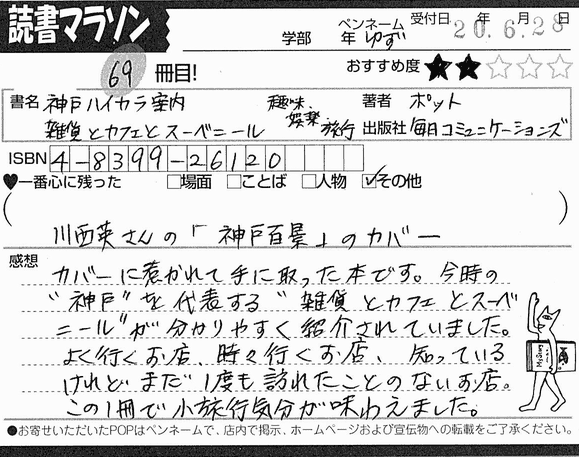 読書マラソン
学部 年 ペンネーム ゆず 受付日 20年6月28日
69 冊目! おすすめ度 ★★☆☆☆
書名 神戸ハイカラ案内 趣味、娯楽、旅行 著者 ポット
雑貨とカフェとスーベニール 出版社 毎日コミュニケーションズ
ISBN 4-8399-26120
♥一番心に残った □場面 □ことば □人物 ☑その他
( )
川西英さんの「神戸百景」のカバー
感想
カバーに惹かれて手に取った本です。今時の
"神戸"を代表する"雑貨とカフェとスーベ
ニール"が分かりやすく紹介されていました。
よく行くお店、時々行くお店、知っている
けれどまだ1度も訪れたことのないお店。
この1冊で小旅行気分が味わえました。
●お寄せいただいたPOPはペンネームで、店内で掲示、ホームページおよび宣伝物への転載をご了承ください。